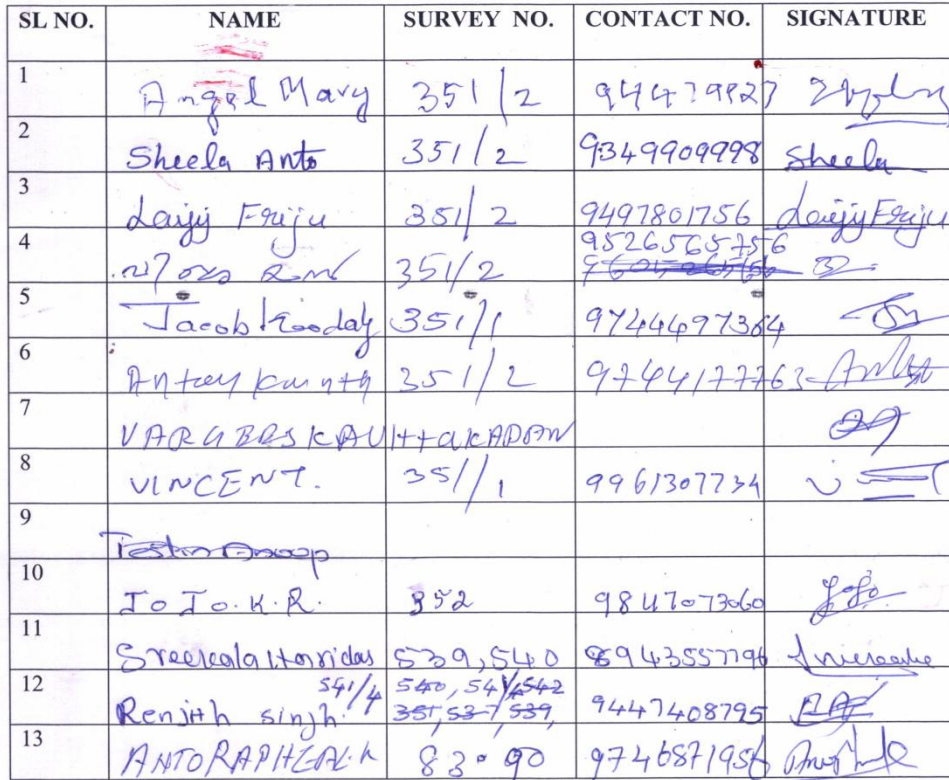 SL NO. NAME SURVEY NO. CONTACT NO. SIGNATURE
1 Angel Mary 351/2 9447 9827
2 Sheela Anto 351/2 9349909998 Sheela
3 Laijy Friju 351/2 9497801756 Laijy Friju
4 351/2 9526565756
5 Jacob 351/1 9744497364
6 Antony 351/2 9744177763
7
8 VINCENT. 351/1 9961307734
9
10 JoJo. K. R. 352 9847073060 Jojo
11 Sreekala Haridas 539,540 8943557796
12 541/4 540, 541/4542
Renjith singh. 351, 537, 539, 9447408795
13 ANTO RAPHEAL.K 83.90 9746871956